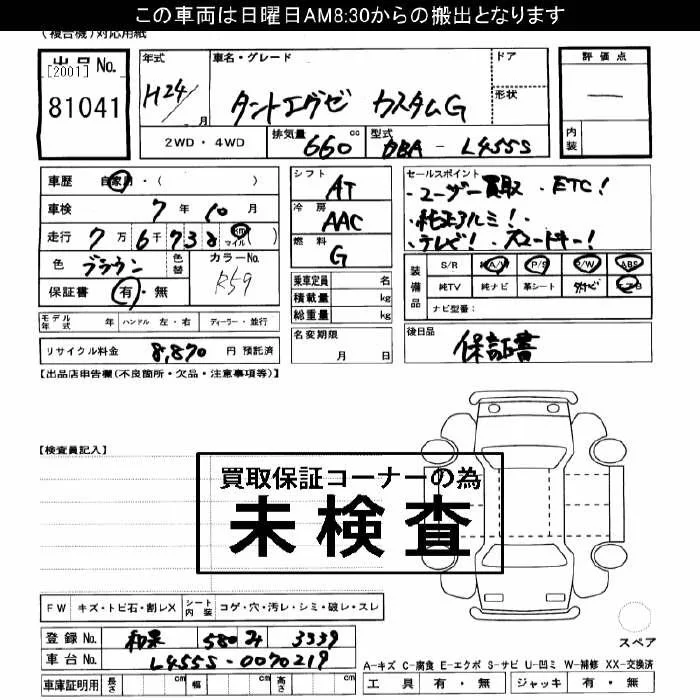 この車両は日曜日AM8:30からの搬出となります
(複合機)対応用紙
出品No.
[2001]
81041
年式 H24/ 月
車名・グレード タントエグゼ カスタムG
ドア
形状
評価点
—
内装
2WD・4WD 排気量 660 cc 型式 DBA - L455S
車歴 自家用・( )
車検 7年10月
走行 7万6千738 km マイル( )
色 ブラウン 色替 カラーNo. R59
保証書 有・無
シフト AT
冷房 AAC
燃料 G
乗車定員 名
積載量 kg
総重量 kg
セールスポイント
・ユーザー買取 ・ETC!
・純正アルミ!・
・テレビ!
装備品
S/R 純A/W P/S P/W ABS
純TV 純ナビ 革シート エアB
ナビ型番:
モデル年式 年 ハンドル 左・右 ディーラー・並行
名変期限 月 日
後日品 保証書
リサイクル料金 8,870 円 預託済
【出品店申告欄(不良箇所・欠品・注意事項等)】
【検査員記入】
買取保証コーナーの為
未検査
FW キズ・トビ石・割レX シート内装 コゲ・穴・汚レ・シミ・破レ・スレ
スペア
登録No. 和泉 580 み 3339
車台No. L455S-0070219
A-キズ C-腐食 E-エクボ S-サビ U-凹ミ W-補修 XX-交換済
車庫証明用 長さ cm 幅 cm 高さ cm
工具 有・無 ジャッキ 有・無